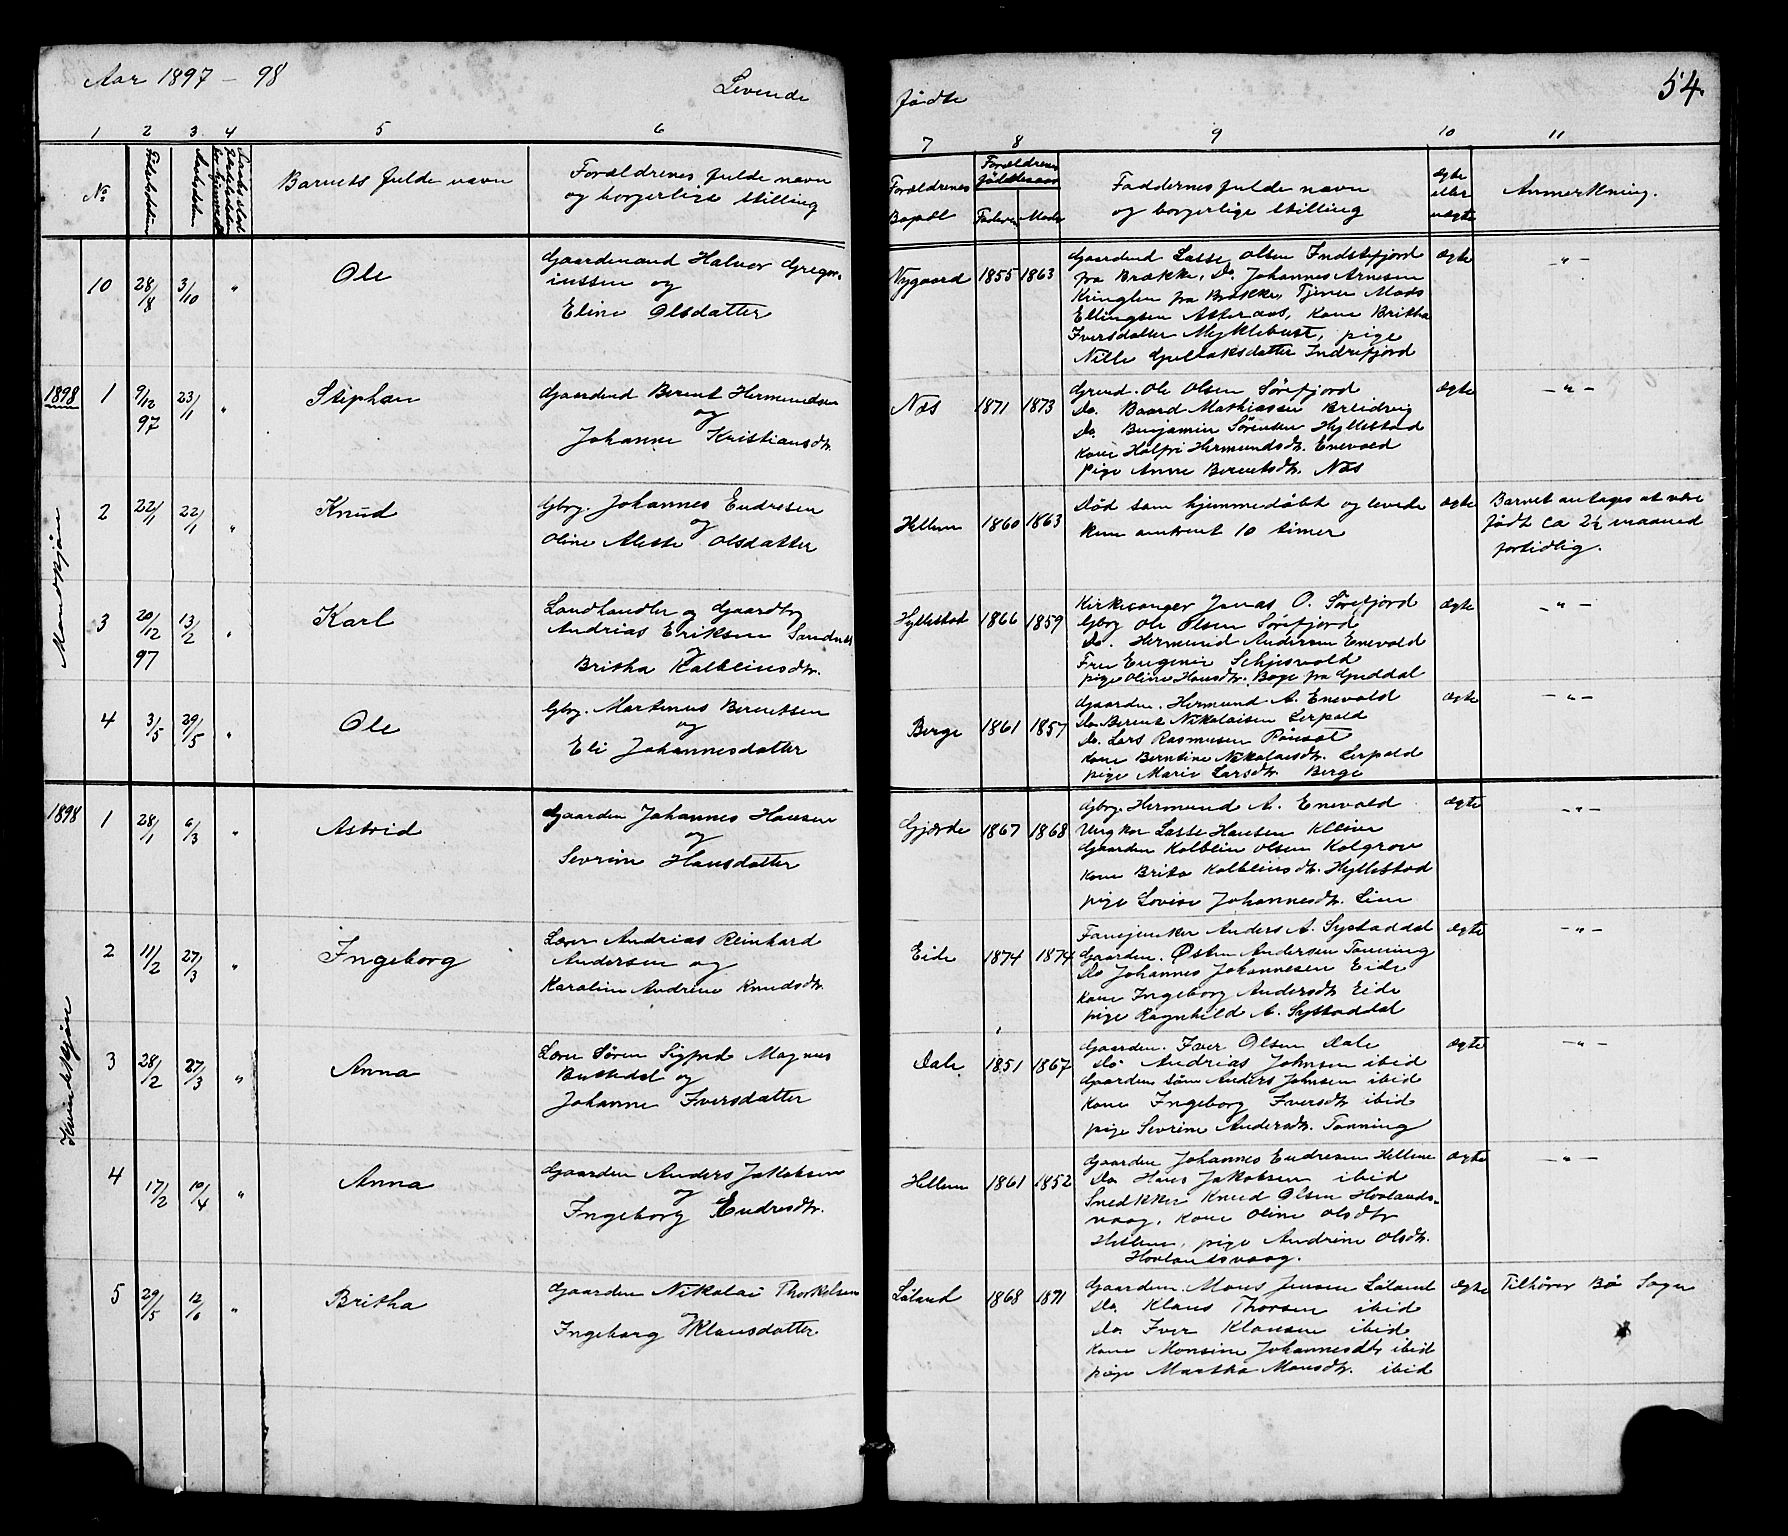 Aar 1897 – 98
Levende
fødte
54.
1 2 3 4 5 6 7 8 9 10 11
No
Fødselsdatum
Daabsdatum
Barnets fulde navn
Forældrenes fulde navn
og borgerlige stilling
Forældrenes
Bopæl
Forældrenes
fødselsaar
Faderen
Moder
Faddernes fulde navn
og borgerlige stilling
Ægte
eller
uægte
Anmerkning.
10 28/8 3/10 " Ole
Gaardmand Halvor Gregor-
iussen og
Eline Olsdatter
Nygaard 1855 1863
Gaardmd Lasse Olsen Indrefjord
fra Brække, Do. Johannes Arnesen
Kringlen fra Brække, Tjener Mads
Ellingsen Atteraas, Kone Britha
Iversdatter Myklebust, pige
Nille Gullaksdatter Indrefjord
Ægte – " –
1898
Mandkjøn
1 9/12 97 23/1 " Stephan
Gaardmd Berent Hermundsen
og
Johanne Kristiansdtr.
Næs 1871 1873
Grmd. Ole Olsen Sørefjord
Do. Baard Mathiassen Breidvig
Do. Benjamin Sørensen Hyllestad
Kone Holfri Hermundsdtr. Enevold
Pige Anne Berentsdtr. Næs
Ægte – " –
2 22/1 22/1 " Knud
Gbrg. Johannes Endresen
og
Oline Alette Olsdatter
Hellem 1860 1863
Død som hjemmedøbt og levede
kun omtrent 10 timer
Ægte
Barnet antages at være
født ca 2½ maaned
fortidlig.
3 20/12 97 13/2 " Karl
Landhandler og Gaardbrg
Andrias Eriksen Sandnes
og
Britha Kolbeinsdtr.
Hyllestad 1866 1859
Kirkesanger Jonas O. Sørefjord
Gbrg Ole Olsen Sørefjord
Do. Hermund Andersen Enevold
Fru Eugenie Schjesvold
pige Oline Hansdtr. Bøge fra Guddal
Ægte – " –
4 3/5 29/5 " Ole
Gbrg. Martinus Berentsen
og
Eli Johannesdatter
Berge 1861 1857
Gaarden. Hermund A. Enevold
Do. Berent Nikolaisen Lerpold
Do. Lars Rasmusen
Kone Berntine Nikolaisdtr. Lerpold
pige Marie Larsdtr. Berge
Ægte – " –
1898
Kvindekjøn
1 28/1 6/3 " Astrid
Gaarden Johannes Hansen
og
Sevrine Hansdatter
Gjærde 1867 1868
Gbrg. Hermund A. Enevold
Ungkar Lasse Hansen
Gaarden Kolbein Olsen Kolgrov
Kone Brita Kolbeinsdtr. Hyllestad
pige Lovise Johannesdtr. Lien
Ægte – " –
2 11/2 27/3 " Ingeborg
Lærer Andrias Reinhard
Andersen og
Karoline Andrine Knudsdtr.
Eide 1874 1874
Fanejunker Anders A. Systaddal
Gaarden. Østen Andersen Tønning
Do Johannes Johannesen Eide
Kone Ingeborg Andersdtr Eide
pige Ragnhild A. Systaddal
Ægte – " –
3 28/2 27/3 " Anna
Lærer Søren Sigfred Magnus
Buskedal og
Johanne Iversdatter
Dale 1851 1867
Gaarden. Iver Olsen Dale
Do Andrias Johnsen ibid
Gaardm. søn Anders Johnsen ibid
Kone Ingeborg Iversdtr ibid
pige Sevrine Andersdtr. Tønning
Ægte – " –
4 17/2 10/4 " Anna
Gaarden Anders Jakobsen
og
Ingeborg Endresdtr.
Hellem 1861 1852
Gaarden Johannes Endresen Hellem
Do Hans Jakobsen ibid
Snedkker Knud Olsen Hovlands-
vaag, Kone Oline Olsdtr
Hellem, pige Andrine Olsdtr.
Hovlandsvaag.
Ægte – " –
5 29/5 12/6 " Britha
Gaarden Nikolai Thorkelsen
og
Ingeborg Klausdatter
Løland 1868 1871
Gaarden Mons Jensen Løland
Do. Klaus Thorsen ibid
Do. Iver Klausen ibid
Kone Monsine Johannesdtr ibid
pige Martha Monsdtr. ibid
Ægte
Tilhører Bø Sogn